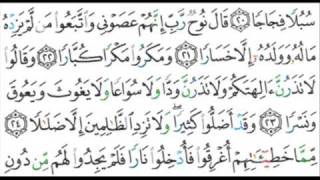 سُبُلًا فِجَاجًا ٢٠ قَالَ نُوحٌ رَّبِّ إِنَّهُمْ عَصَوْنِي وَٱتَّبَعُوا۟ مَن لَّمْ يَزِدْهُ
مَالُهُۥ وَوَلَدُهُۥٓ إِلَّا خَسَارًا ٢١ وَمَكَرُوا۟ مَكْرًا كُبَّارًا ٢٢ وَقَالُوا۟
لَا تَذَرُنَّ ءَالِهَتَكُمْ وَلَا تَذَرُنَّ وَدًّا وَلَا سُوَاعًا وَلَا يَغُوثَ وَيَعُوقَ
وَنَسْرًا ٢٣ وَقَدْ أَضَلُّوا۟ كَثِيرًا ۖ وَلَا تَزِدِ ٱلظَّٰلِمِينَ إِلَّا ضَلَٰلًا ٢٤
مِّمَّا خَطِيٓـَٰٔتِهِمْ أُغْرِقُوا۟ فَأُدْخِلُوا۟ نَارًا فَلَمْ يَجِدُوا۟ لَهُم مِّن دُونِ